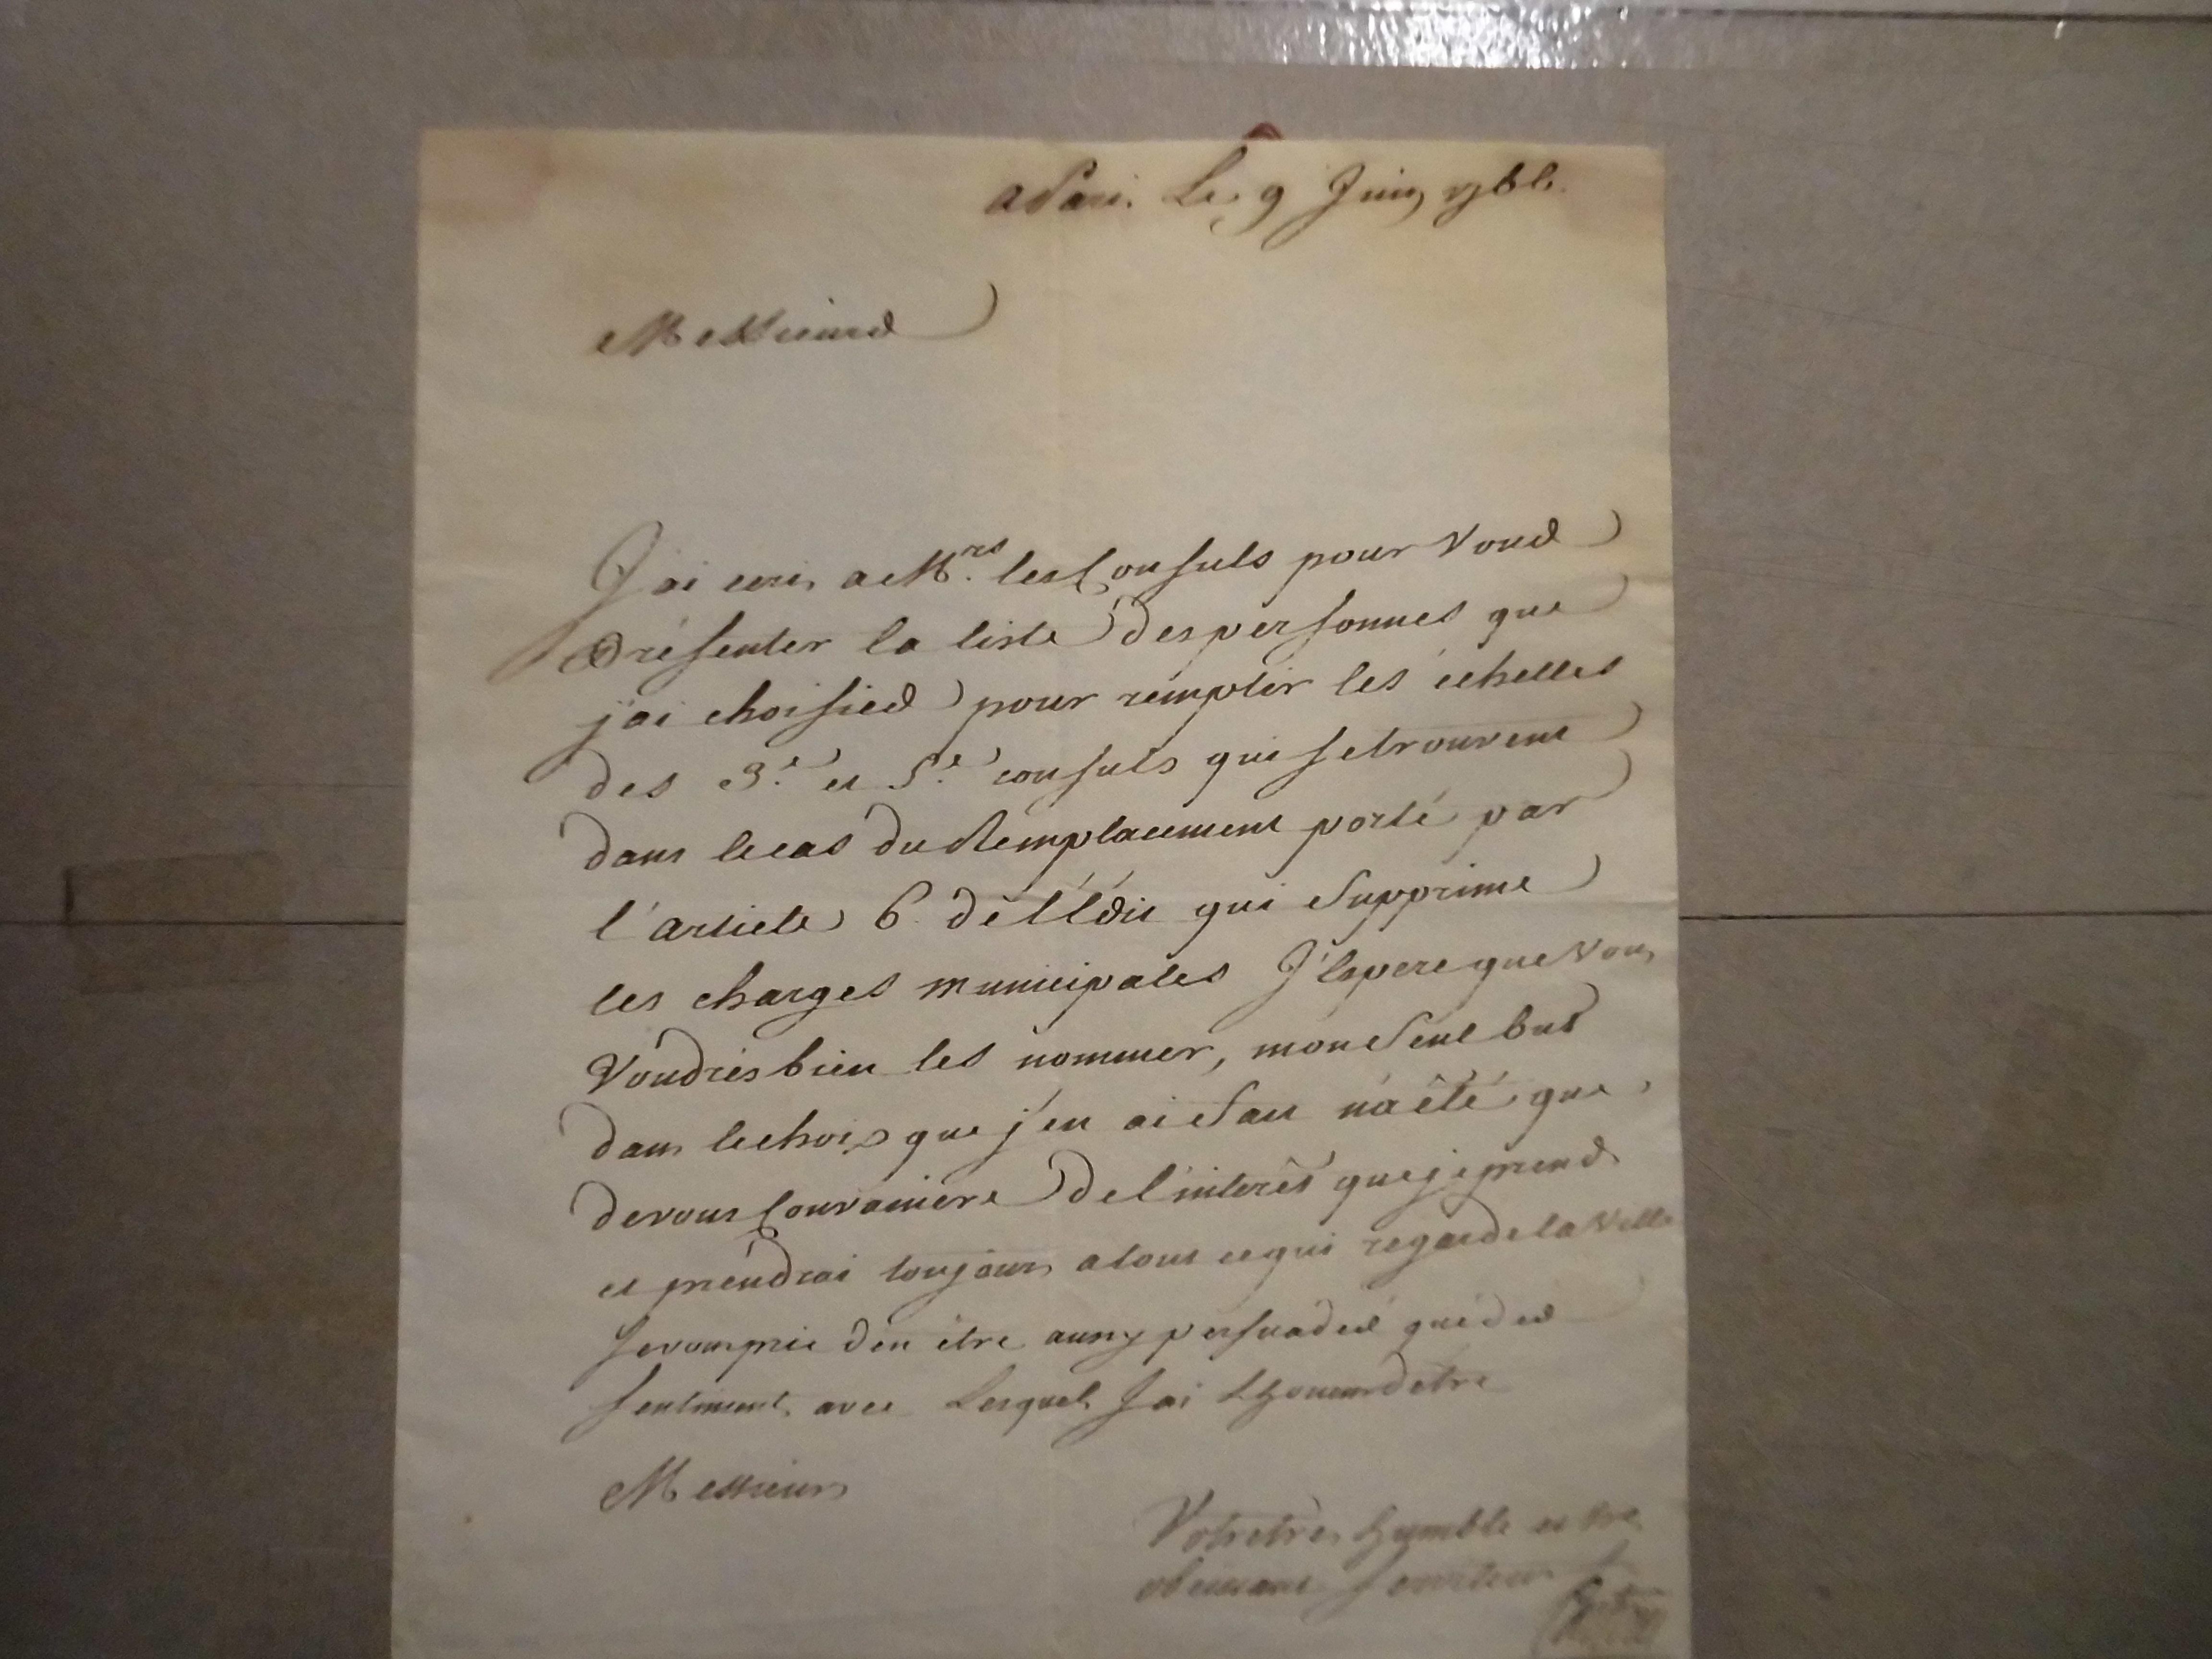 a Paris Le 9 Juin 1766.
Messieurs
J'ai ecris a Mrs. les Consuls pour Vous
Présenter la liste des personnes que
j'ai choisies pour remplir les échelles
des 3e. et 5e. consuls qui se trouvent
dans le cas du Remplacement porté par
l'article 6 de l'Edit qui Supprime
les charges municipales J'Espere que Vous
Voudres bien les nommer, mon Seul but
dans le choix que j'en ai Fait n'a été que
de vous Convaincre de l'interêt que je prends
et prendrai toujours a tout ce qui regarde la Ville
Je vous prie d'en être aussy persuadés que des
sentiments avec Lesquels J'ai Lhonneur d'etre
Messieurs
Votre très humble et tres
obeissant Serviteur